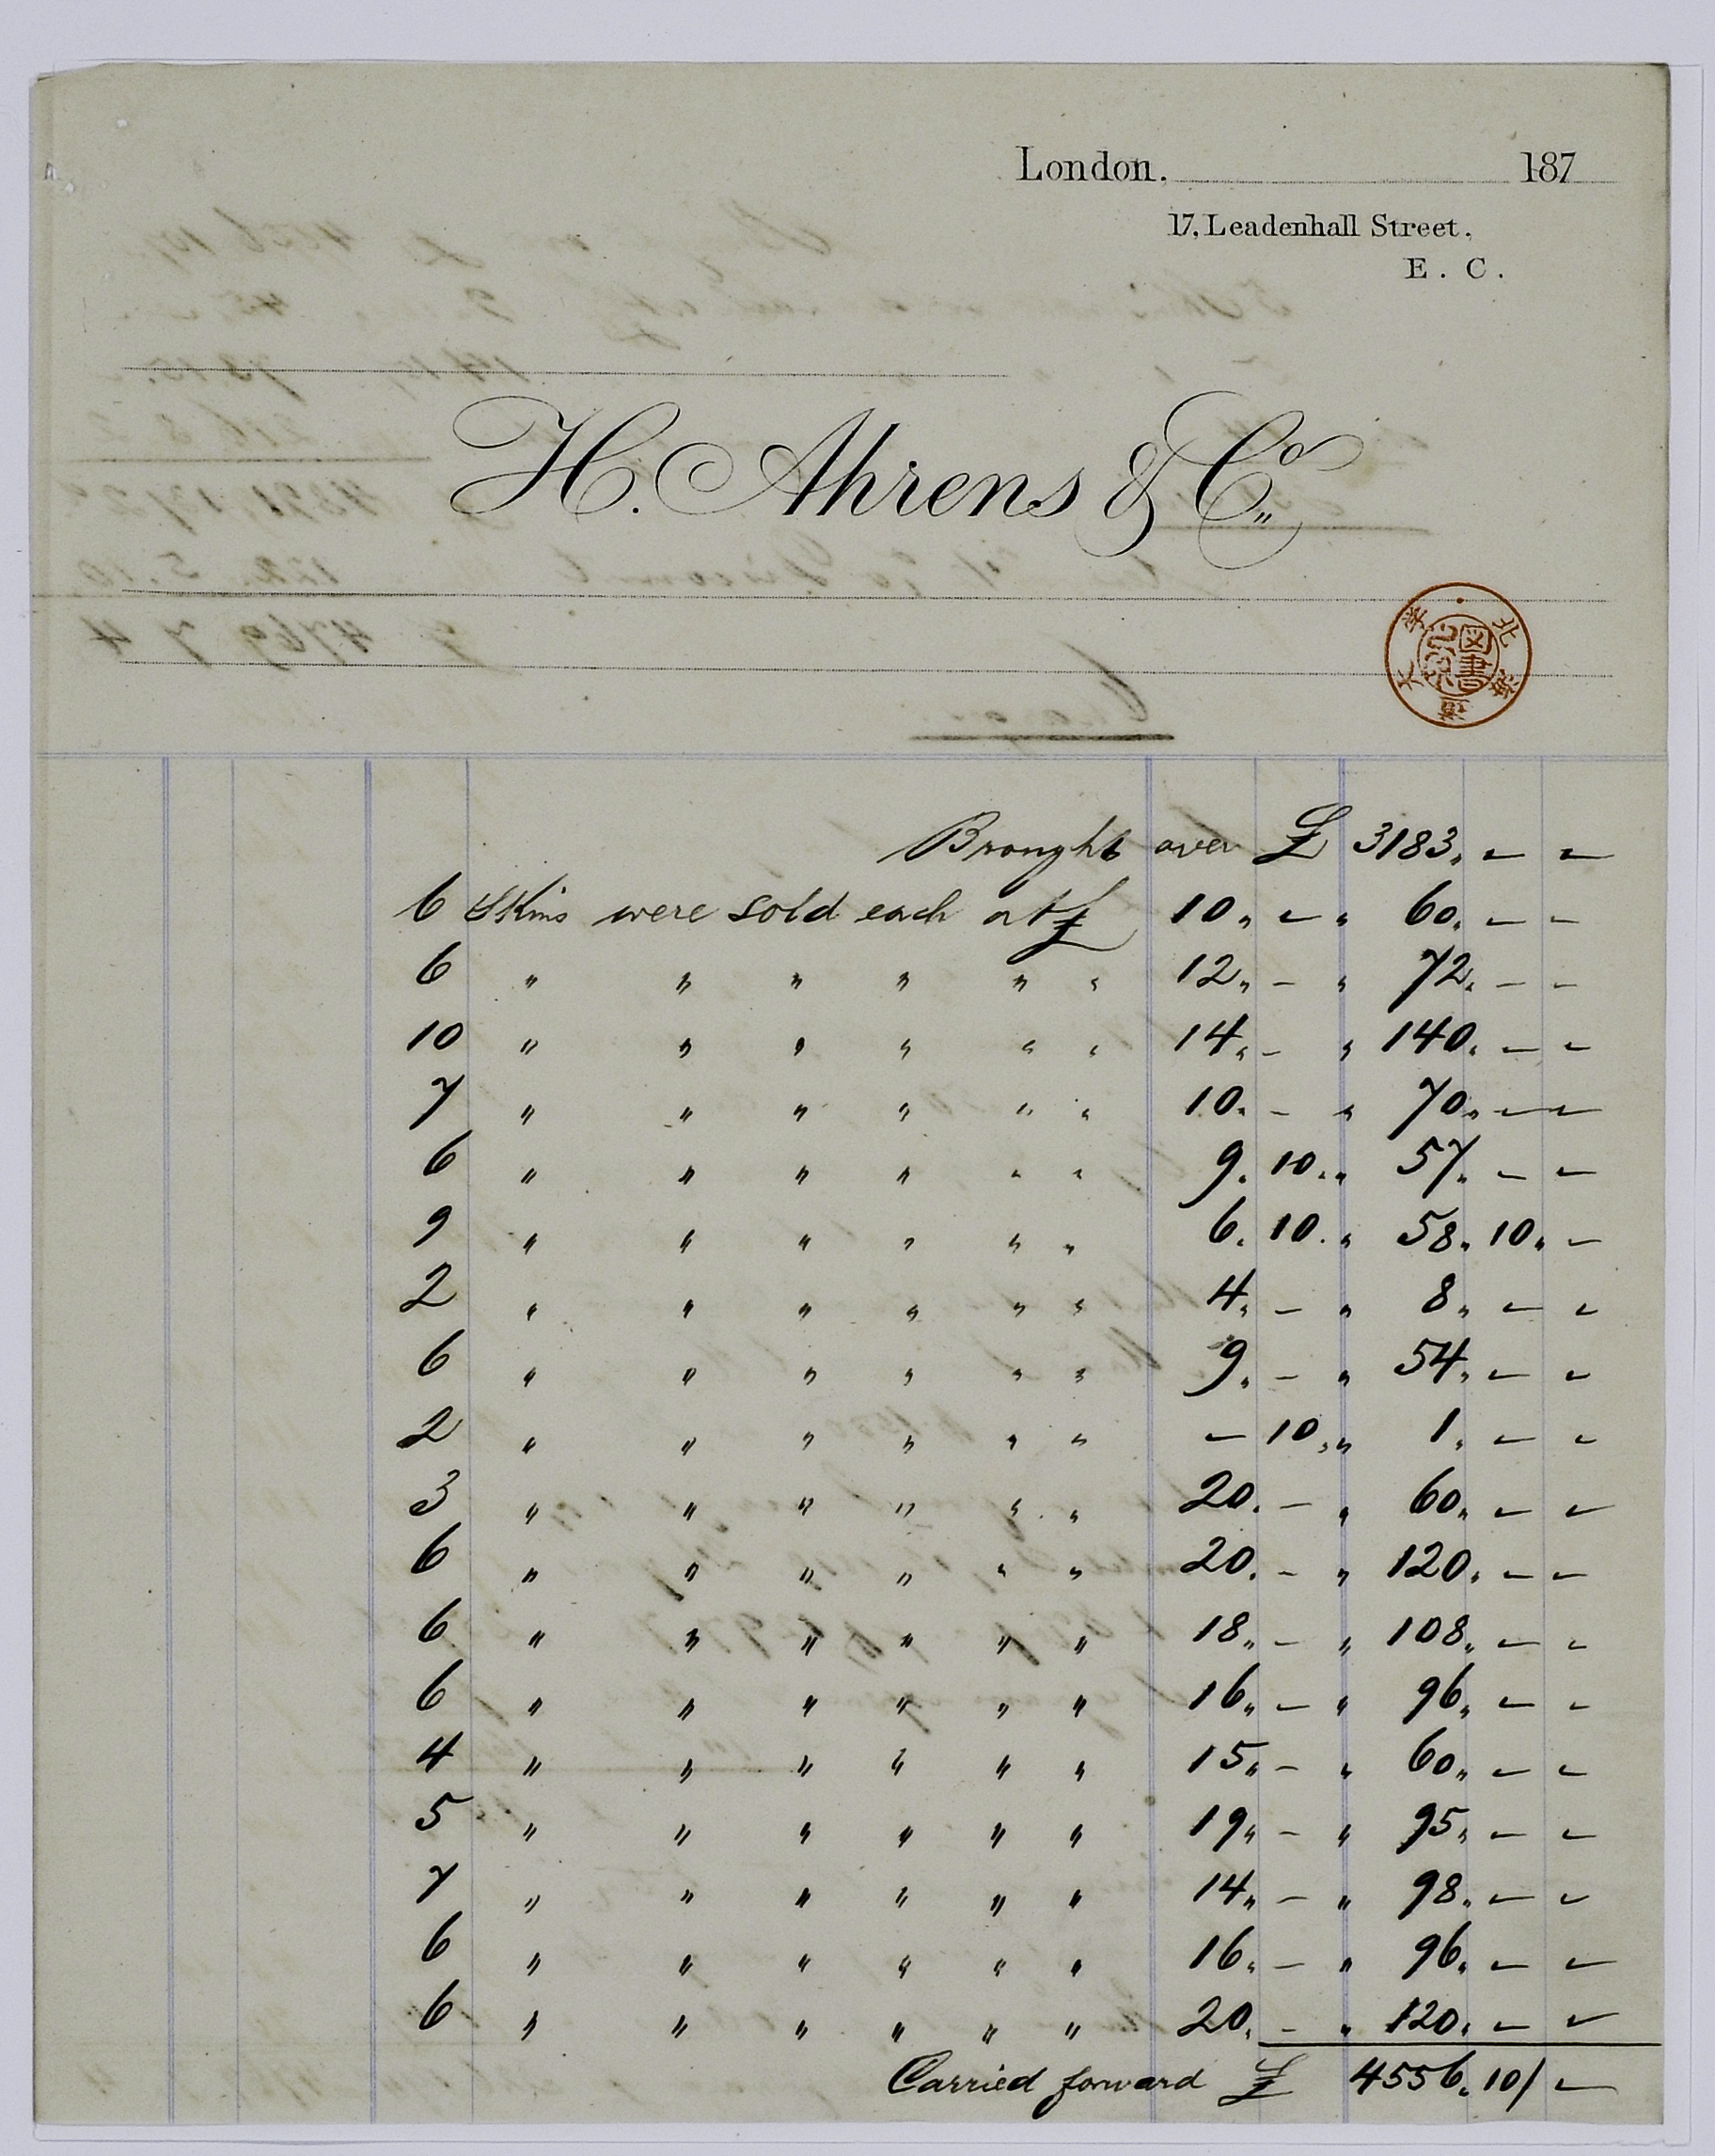 London. 187
17, Leadenhall Street.
E. C.
H. Ahrens & Co.
Brought over £ 3183 " — —
6 Skins were sold each at £ 10 " — " 60 " — —
6 " " " " " " 12 " — " 72 " — —
10 " " " " " " 14 " — " 140 " — —
7 " " " " " " 10 " — " 70 " — —
6 " " " " " " 9 " 10 " " 57 " — —
9 " " " " " " 6 " 10 " " 58 " 10 " —
2 " " " " " " 4 " — " 8 " — —
6 " " " " " " 9 " — " 54 " — —
2 " " " " " " — 10 " " 1 " — —
3 " " " " " " 20 " — " 60 " — —
6 " " " " " " 20 " — " 120 " — —
6 " " " " " " 18 " — " 108 " — —
6 " " " " " " 16 " — " 96 " — —
4 " " " " " " 15 " — " 60 " — —
5 " " " " " " 19 " — " 95 " — —
7 " " " " " " 14 " — " 98 " — —
6 " " " " " " 16 " — " 96 " — —
6 " " " " " " 20 " — " 120 " — —
Carried forward £ 4556 " 10/ —